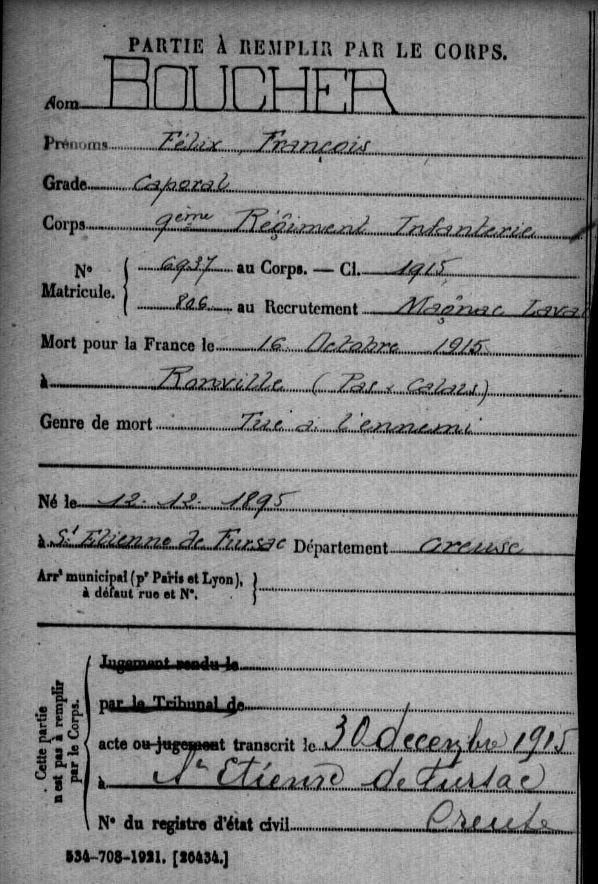 PARTIE À REMPLIR PAR LE CORPS.
Nom BOUCHER
Prénoms Félix, François
Grade Caporal
Corps 9ème Régiment Infanterie
N° Matricule. 6937 au Corps. — Cl. 1915
806 au Recrutement Magnac Laval
Mort pour la France le 16 Octobre 1915
à Ronville (Pas-Calais)
Genre de mort Tué à l'ennemi
Né le 12-12-1895
à St Etienne de Fursac Département Creuse
Arrt municipal (pr Paris et Lyon),
à défaut rue et N°.
Cette partie n'est pas à remplir par le Corps.
Jugement rendu le
par le Tribunal de
acte ou jugement transcrit le 30 décembre 1915
à St Etienne de Fursac
N° du registre d'état civil Creuse
534-708-1921. [26434.]